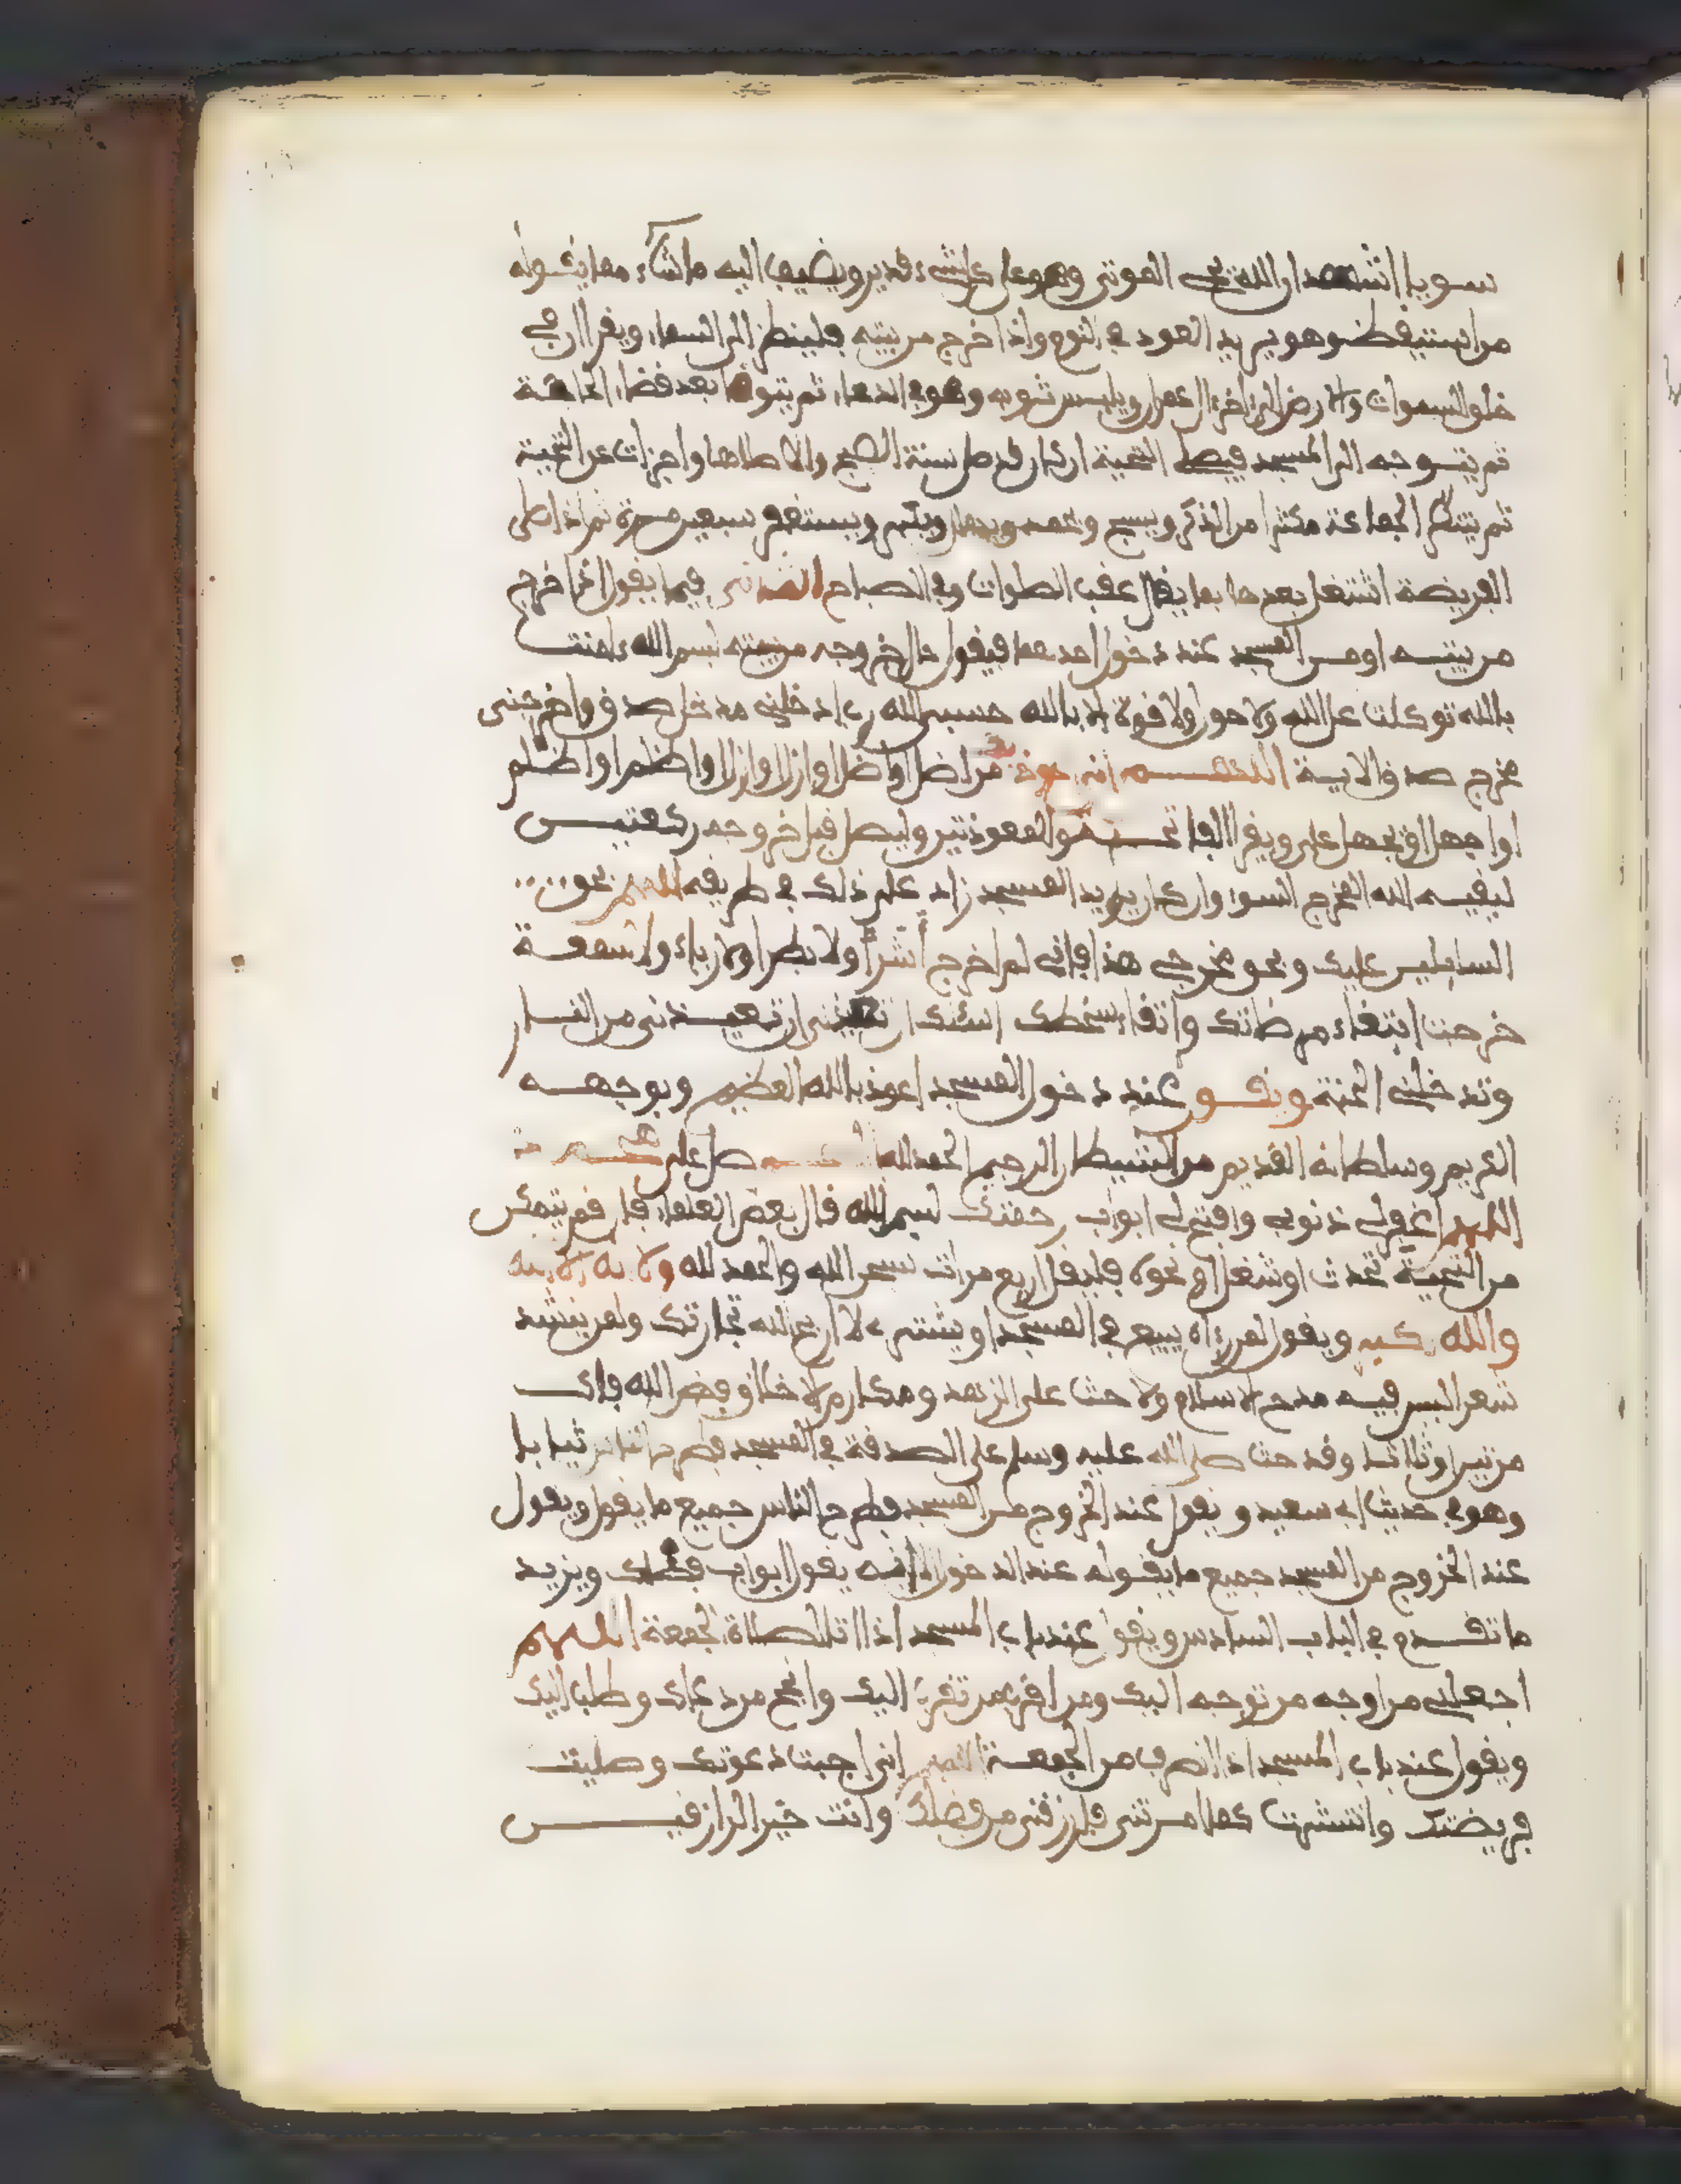 سويا اشهد ان الله يحي الموتى وهو على كل شيء قدير ويضيف اليه ما شاء مما يقوله
من استيقظ وهو يريد العود في النوم واذا خرج من بيته فلينظر الى السماء ويقرا ان في
خلق السموات والارض الى اخر ال عمران ويلبس ثوبه وهو في الدعاء ثم يتوضا بعد قضاء الحاجة
ثم يتوجه الى المسجد فيصلي التحية ان كان قد صلى سنة الصبح والا صلاها واجزات عن التحية
ثم ينتظر الجماعة مكثرا من الذكر ويسبح ويحمد ويهلل ويكبر ويستغفر سبعين مرة ثم اذا صلى
الفريضة اشتغل بعدها بما يقال عقب الصلوات وفي الصباح الثاني فيما يقول اذا خرج
من بيته او من المسجد عند دخول احدهما فيقول حال خروجه من بيته بسم الله ءامنت
بالله توكلت على الله ولا حول ولا قوة الا بالله حسبي الله رب ادخلني مدخل صدق واخرجني
مخرج صدق الاية اللهم اني اعوذ بك من ان اضل او اضل او ازل او ازل او اظلم او اظلم
او اجهل او يجهل علي ويقرا الفاتحة والمعوذتين وليصل قبل خروجه ركعتين
ليقيه الله المخرج السوء وان كان يريد المسجد زاد على ذلك في طريقه اللهم بحق
السائلين عليك وبحق مخرجي هذا فاني لم اخرج اشرا ولا بطرا ولا رياء ولا سمعة
خرجت ابتغاء مرضاتك واتقاء سخطك اسئلك ان تعيذني من النار
وتدخلني الجنة ويقول عند دخول المسجد اعوذ بالله العظيم وبوجهه
الكريم وسلطانه القديم من الشيطان الرجيم الحمد لله اللهم صل على محمد
اللهم اغفر لي ذنوبي وافتح لي ابواب رحمتك بسم الله قال بعض العلماء فان لم يتمكن
من التحية لحدث او شغل او نحوه فليقل اربع مرات سبحن الله والحمد لله ولا اله الا الله
والله اكبر ويقول لمن رءاه يبيع في المسجد او يشتري لا اربح الله تجارتك ولمن ينشد
شعرا ليس فيه مدح الاسلام ولا حث على الزهد ومكارم الاخلاق فض الله فاك
مرتين او ثلاثا وقد حث صلى الله عليه وسلم على الصدقة في المسجد فطرح الناس ثيابا
وهو في حديث ابي سعيد ويقول عند الخروج من المسجد فطرح الناس جميع ما يقول ويقول
عند الخروج من المسجد جميع ما يقوله عند الدخول الا انه يقول ابواب فضلك ويزيد
ما تقدم في الباب السادس ويقول عند باب المسجد اذا اتى لصلاة الجمعة اللهم
اجعلني من اوجه من توجه اليك ومن اقرب من تقرب اليك وانجح من دعاك وطلب اليك
ويقول عند باب المسجد اذا انصرف من الجمعة اللهم اني اجبت دعوتك وصليت
فريضتك وانتشرت كما امرتني فارزقني من فضلك وانت خير الرازقين